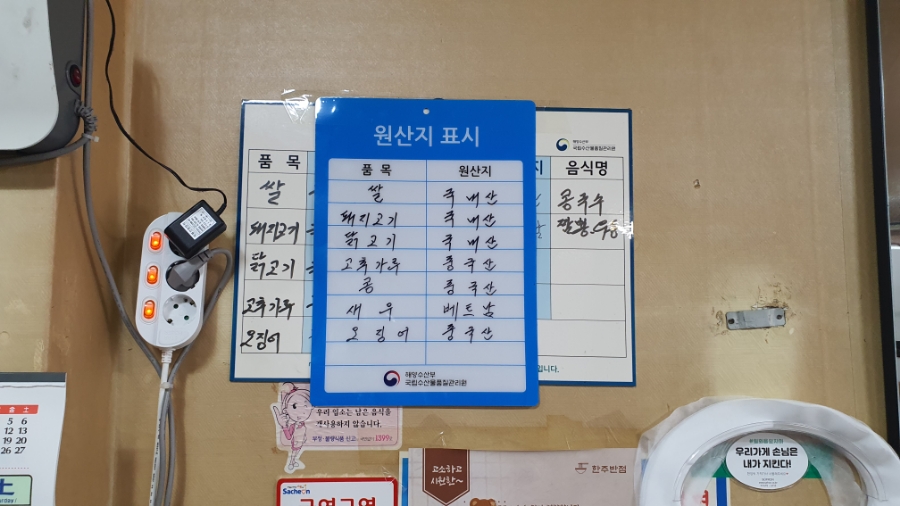 원산지 표시
품 목 원산지
쌀 국내산
돼지고기 국내산
닭고기 국내산
고추가루 중국산
콩 중국산
새우 베트남
오징어 중국산
해양수산부
국립수산물품질관리원
품 목
쌀
돼지고기
닭고기
고추가루
오징어
해양수산부
국립수산물품질관리원
지 음식명
콩국수
니다.
우리 업소는 남은 음식을
재사용하지 않습니다.
부정·불량식품 신고는 국번없이 1399로
Sacheon
고소하고
시원한~
한주반점
우리가게 손님은
내가 지킨다!
금 토
5 6
12 13
19 20
26 27
土